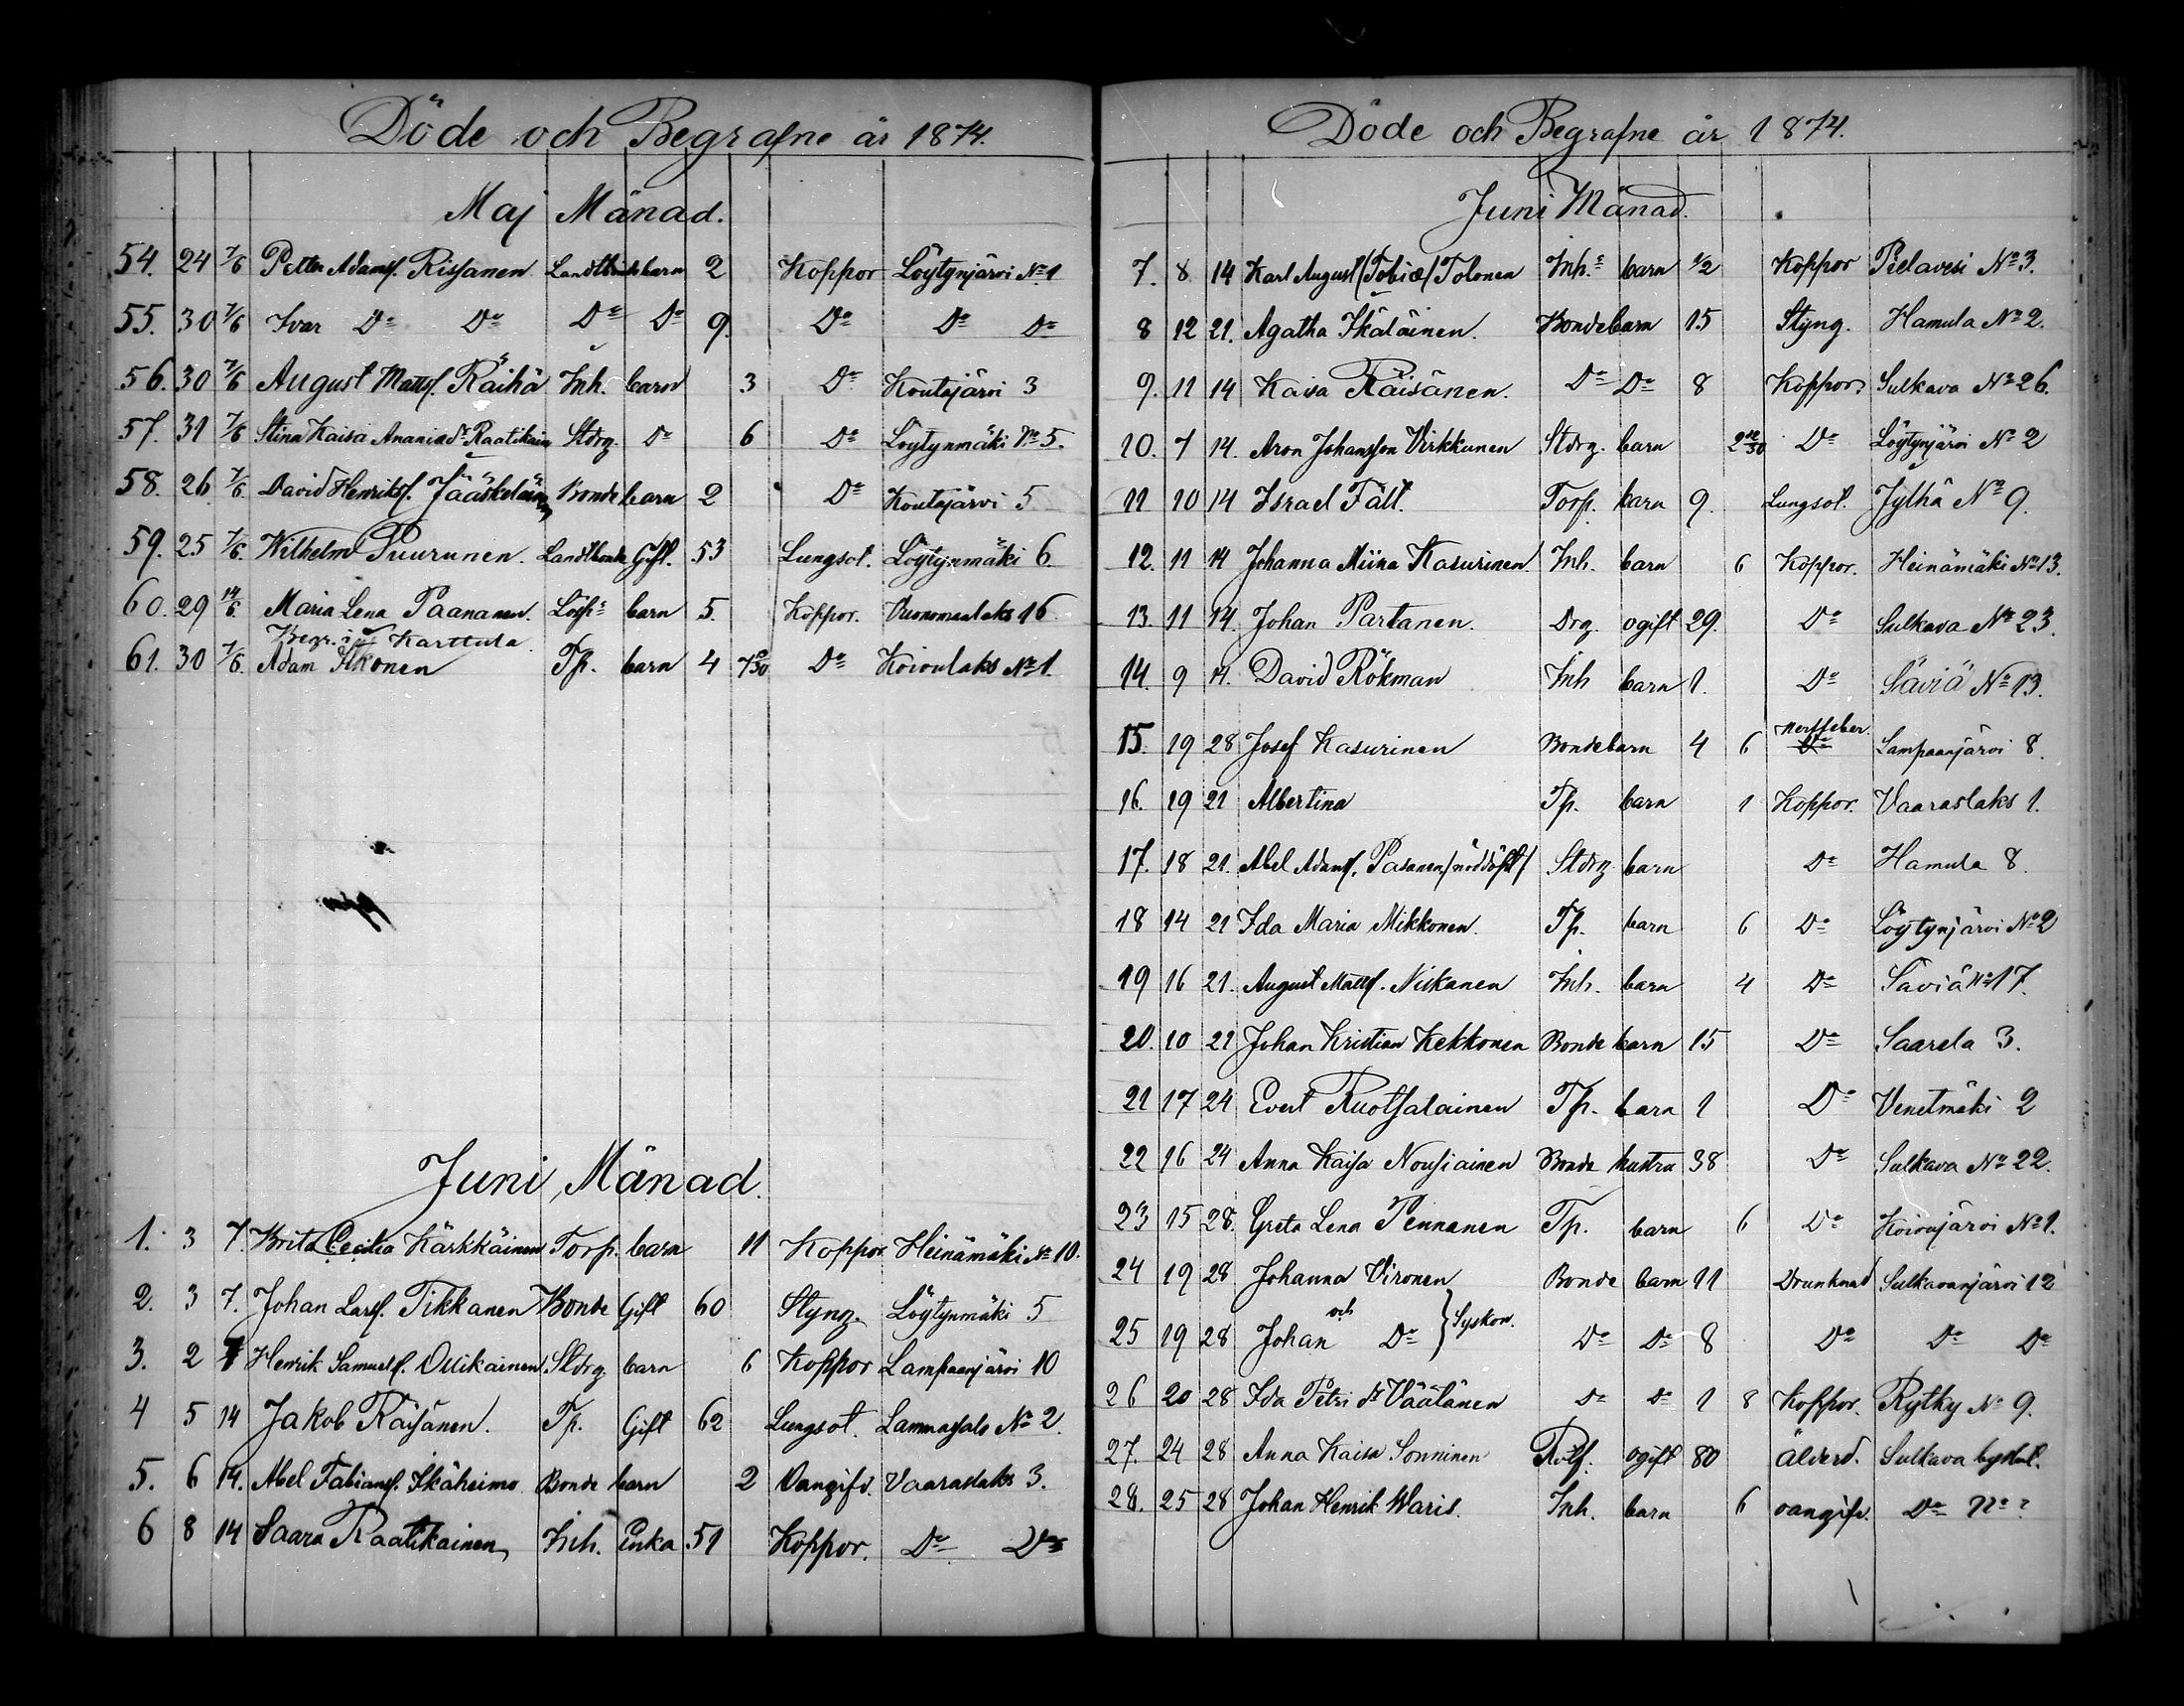 Döde och Begrafne år 1874.
Maj Månad.
54. 24 7/6 Petter Adamss. Rissanen Landtbondebarn 2 Koppor Löytynjärvi No 1
55. 30 7/6 Ivar Do Do Do Do 9. Do Do Do
56. 30 7/6 August Mattss. Räihä Inh. barn 3 Do Koutajärvi 3
57. 31 7/6 Stina Kaisa Ananiadr Raatikain Stdrg. Do 6 Do Löytynmäki No 5.
58. 26 7/6 David Henrikss. Jääskeläinen Bonde barn 2 Do Koutajärvi 5
59. 25 7/6. Wilhelm Puurunen. Landtbonde Gift. 53 Lungsot. Löytynmäki 6.
60. 29 14/6. Maria Lena Paananen. Lösp. barn 5. Koppor. Vuonamanlaks 16
Begr. i Karttula
61. 30 7/6. Adam Ikonen Tp. barn 4 7 Do Koivulaks No 1.
Juni Månad.
1. 3 7. Brita Cecilia Kärkkäinen Torp. barn 11 Koppor Heinämäki No 10.
2. 3 7. Johan Larss. Tikkanen Bonde Gift 60 Styng. Löytynmäki 5
3. 2 7 Henrik Samuelss. Ollikainen Stdrg. barn 6 Koppor Lampaanjärvi 10
4 5 14 Jakob Räisänen. Tp. Gift 62 Lungsot. Lammassalo No 2.
5. 6 14. Abel Fabianss. Ikäheimo Bonde barn 2 Oangifv. Vaaraslaks 3.
6 8 14 Saara Raatikainen, Inh. Enka 51 Koppor. Do Do
Döde och Begrafne år 1874.
Juni Månad.
7. 8 14 Karl August (Tobiæ) Tolonen Inh.s barn 1/2 Koppor Pielavesi No 3.
8 12 21. Agatha Ikäläinen. Bondebarn 15 Styng. Hamula No 2.
9. 11 14 Kaisa Räisänen. Do Do 8 Koppor Sulkava No 26.
10. 7 14. Aron Johansson Virkkunen Stdrg. barn 2 Do Löytynjärvi No 2
11 10 14 Israel Fält. Torp. barn 9. Lungsot. Jylhä No 9.
12. 11 14 Johanna Miina Kasurinen. Inh. barn 6 Koppor. Heinämäki No 13.
13. 11 14. Johan Partanen. Drg. ogift 29. Do Sulkava No 23.
14. 9 14. David Rökman Inh barn 1. Do Säviä No 13.
15. 19 28 Josef Kasurinen Bondebarn 4 6 Nerffeber Do Lampaanjärvi 8.
16. 19 21 Albertina Tp. barn 1 Koppor. Vaaraslaks 1.
17. 18 21. Abel Adamss. Pasanen (nöddöpt) Stdrg barn Do Hamula 8.
18 14 21 Ida Maria Mikkonen. Tp. barn 6 Do Löytynjärvi No 2
19 16 21. August Mattss. Niskanen Inh. barn 4 Do Säviä No 17.
20. 10 21 Johan Kristian Kekkonen Bonde barn 15 Do Saarela 3.
21 17 24 Evert Ruotsalainen Tp. barn 1 Do Venetmäki 2
22 16 24 Anna Kaisa Nousiainen Bonde hustru 38 Do Sulkava No 22.
23 15 28. Greta Lena Pennanen Tp. barn 6 Do Koivujärvi No 1.
24 19 28 Johanna Vironen Bonde barn 11 Drunknad Sulkavanjärvi 12
och } Syskon.
25 19 28 Johan Do Do Do 8 Do Do Do
26 20 28 Ida Petri dr Väätänen Do Do 1 8 Koppor. Rytky No 9.
27. 24 28 Anna Kaisa Sonninen Rotf. ogift 80 Ålderd. Sulkava
28. 25 28 Johan Henrik Waris. Inh. barn 6 oangifv. Do No ?